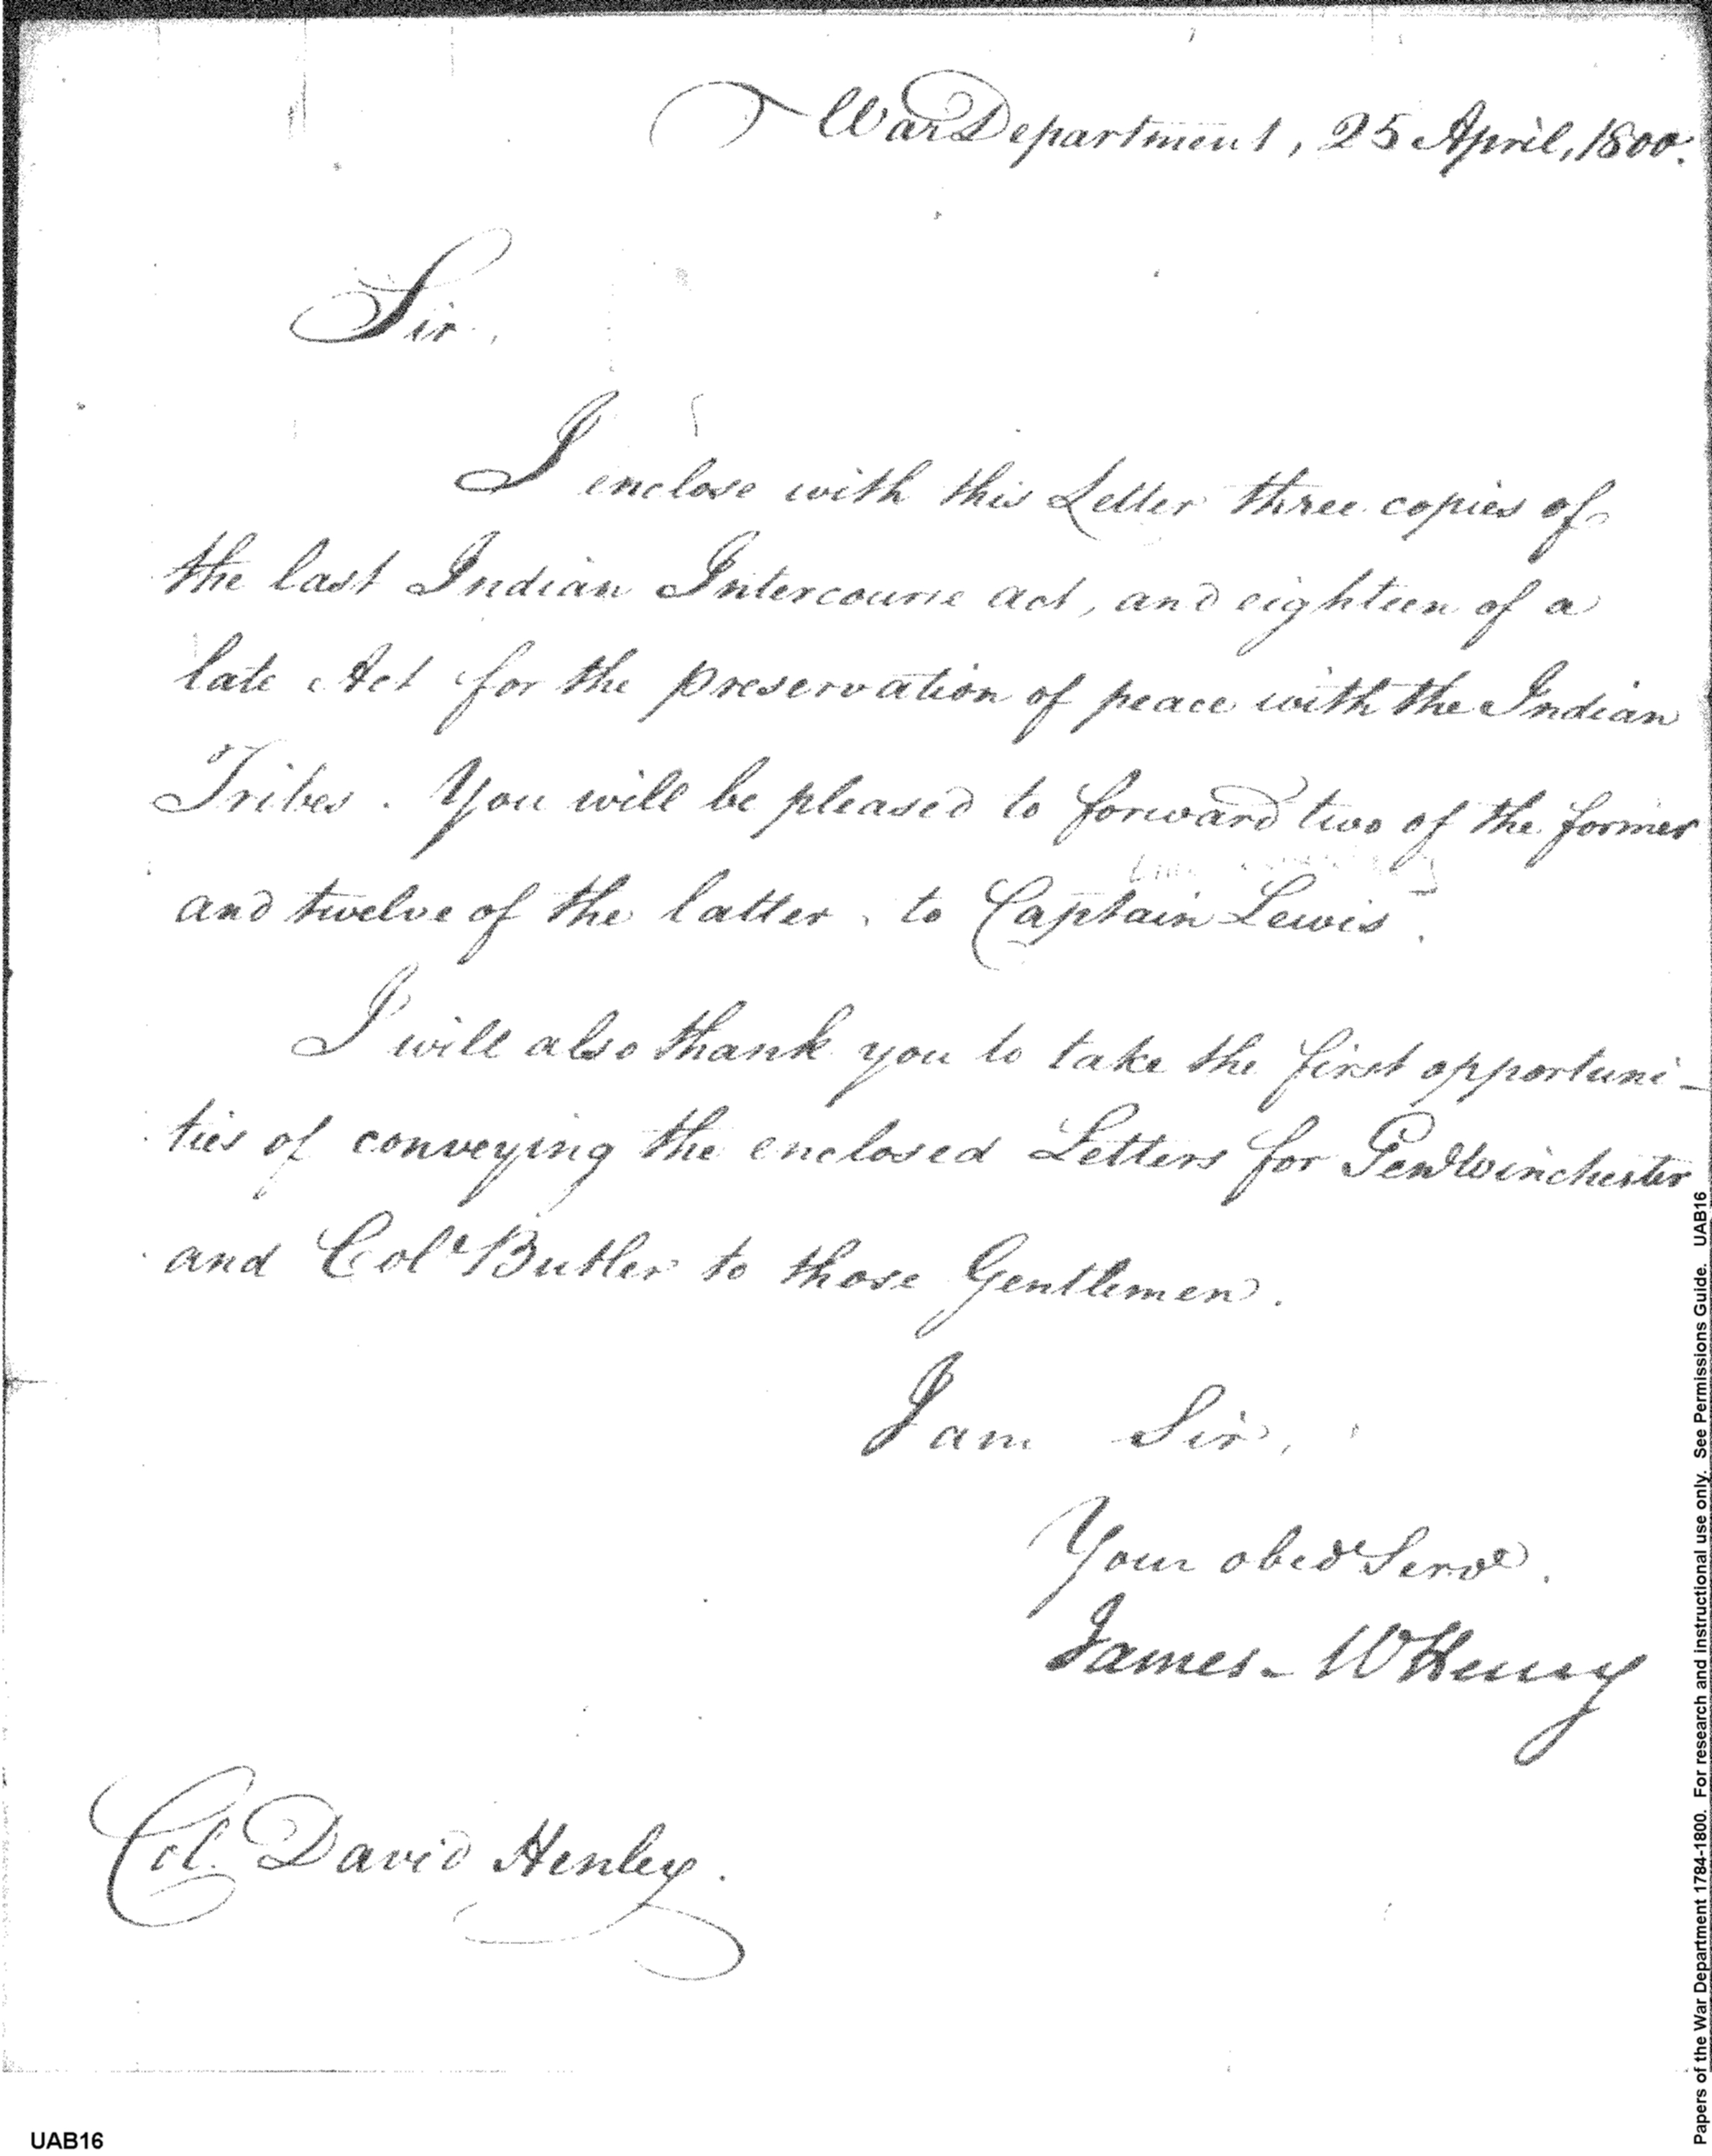 War Department, 25 April, 1800.
Sir,
I enclose with this Letter three copies of
the last Indian Intercourse act, and eighteen of a
late Act for the preservation of peace with the Indian
Tribes. You will be pleased to forward two of the former
and twelve of the latter, to Captain Lewis.
I will also thank you to take the first opportuni-
ties of conveying the enclosed Letters for Genl Winchester
and Col. Butler to those Gentlemen.
I am Sir,
Your obed Servt.
James McHenry
Col. David Henley.
UAB16
Papers of the War Department 1784-1800. For research and instructional use only. See Permissions Guide. UAB16